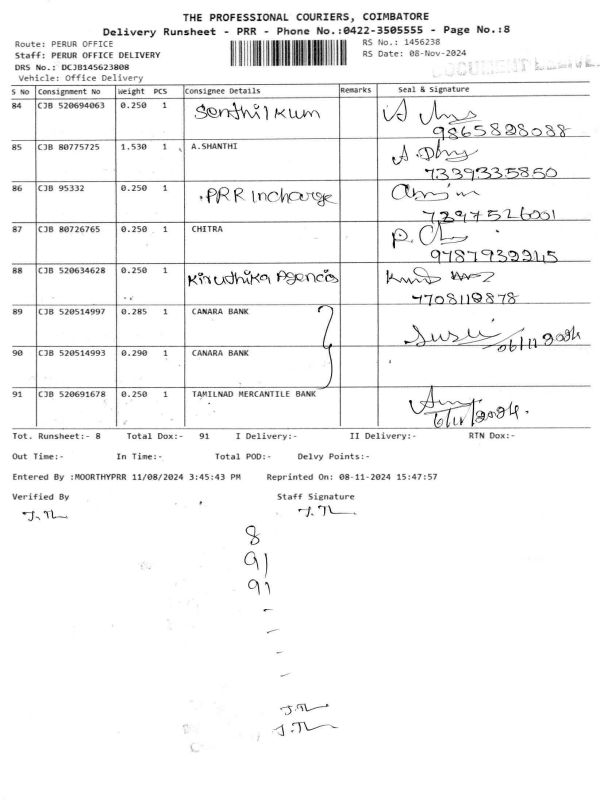 THE PROFESSIONAL COURIERS, COIMBATORE
Delivery Runsheet - PRR - Phone No.:0422-3505555 - Page No.:8
Route: PERUR OFFICE RS No.: 1456238
Staff: PERUR OFFICE DELIVERY RS Date: 08-Nov-2024
DRS No.: DCJB145623808
Vehicle: Office Delivery
S No Consignment No Weight PCS Consignee Details Remarks Seal & Signature
84 CJB 520694063 0.250 1 Senthil Kum
9865828088
85 CJB 80775725 1.530 1 A.SHANTHI
7339335850
86 CJB 95332 0.250 1 PRR Incharge
7397526001
87 CJB 80726765 0.250 1 CHITRA
9787932245
88 CJB 520634628 0.250 1 Kirudhika Agencis
7708118878
89 CJB 520514997 0.285 1 CANARA BANK
06/11/2024
90 CJB 520514993 0.290 1 CANARA BANK
91 CJB 520691678 0.250 1 TAMILNAD MERCANTILE BANK
6/11/2024.
Tot. Runsheet:- 8 Total Dox:- 91 I Delivery:- II Delivery:- RTN Dox:-
Out Time:- In Time:- Total POD:- Delvy Points:-
Entered By :MOORTHYPRR 11/08/2024 3:45:43 PM Reprinted On: 08-11-2024 15:47:57
Verified By Staff Signature
8
91
91
-
-
-
-